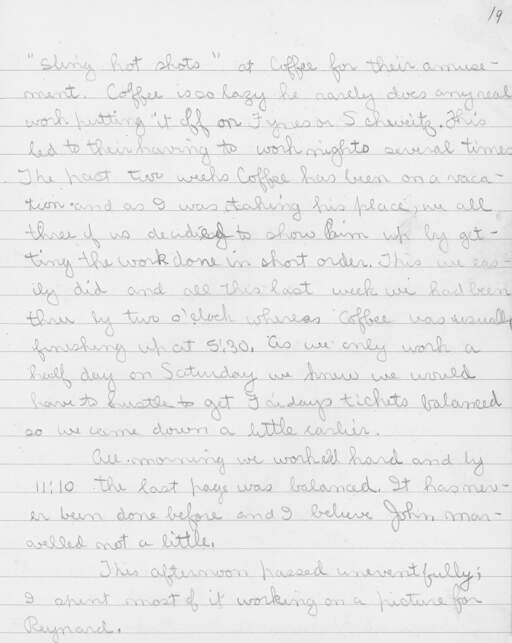 19
"sling hot shots" at Coffee for their amuse-
ment. Coffee is so lazy he rarely does any real
work putting it off on Fynes or Scheweitz. This
led to their having to work nights several times
The past two weeks Coffee has been on a vaca-
tion and as I was taking his place, we all
three of us decided to show him up by get-
ting the work done in short order. This we eas-
ily did and all this last week we had been
thru by two o'clock whereas Coffee was usually
finishing up at 5:30. As we only work a
half day on Saturday we knew we would
have to hustle to get Fridays tickets balanced
so we came down a little earlier.
All morning we worked hard and by
11:10 the last page was balanced. It has nev-
er been done before and I believe John mar-
velled not a little.
This afternoon passed uneventfully;
I spent most of it working on a picture for
Reynard.